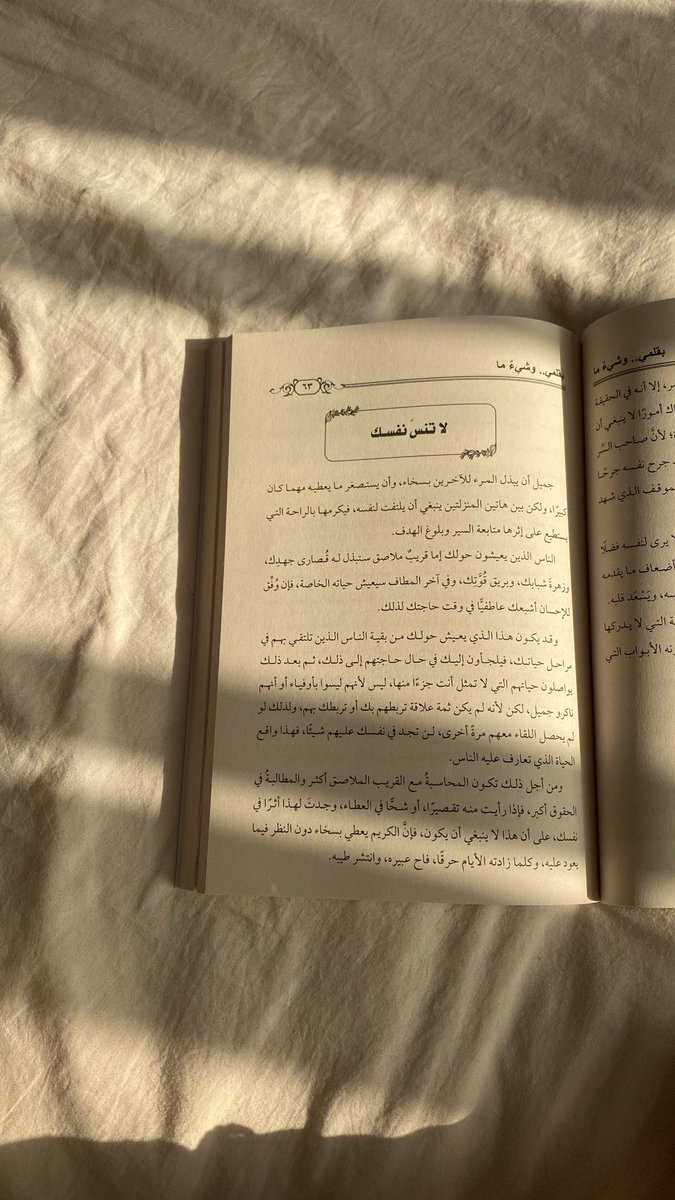 بقلمي.. وشيءٌ ما
ر، إلا أنه في الحقيقة
اك أمورًا لا ينبغي أن
لأنَّ صاحب السِّر
جرح نفسه جرحًا
لموقف الذي شهد
لا يرى لنفسه فضلًا
أضعاف ما يقدمه
ويَسْعَد قلبه.
التي لا يدركها
الأبواب التي
بقلمي.. وشيءٌ ما
٦٣
لا تنسَ نفسك
جميل أن يبذل المرء للآخرين بسخاء، وأن يستصغر ما يعطيه مهما كان
كبيرًا، ولكن بين هاتين المنزلتين ينبغي أن يلتفت لنفسه، فيكرمها بالراحة التي
يستطيع على إثرها متابعة السير وبلوغ الهدف.
الناس الذين يعيشون حولك إما قريبٌ ملاصق ستبذل له قُصارى جهدِك،
وزهرةَ شبابك، وبريق قُوَّتِك، وفي آخر المطاف سيعيش حياته الخاصة، فإن وُفِّق
للإحسان أشبعك عاطفيًّا في وقت حاجتك لذلك.
وقد يكون هذا الذي يعيش حولك من بقية الناس الذين تلتقي بهم في
مراحل حياتك، فيلجأون إليك في حال حاجتهم إلى ذلك، ثم بعد ذلك
يواصلون حياتهم التي لا تمثل أنت جزءًا منها، ليس لأنهم ليسوا بأوفياء أو أنهم
ناكرو جميل، لكن لأنه لم يكن ثمة علاقة تربطهم بك أو تربطك بهم، ولذلك لو
لم يحصل اللقاء معهم مرةً أخرى، لن تجد في نفسك عليهم شيئًا، فهذا واقع
الحياة الذي تعارف عليه الناس.
ومن أجل ذلك تكون المحاسبةُ مع القريب الملاصق أكثر والمطالبةُ في
الحقوق أكبر، فإذا رأيت منه تقصيرًا، أو شحًّا في العطاء، وجدتَ لهذا أثرًا في
نفسك، على أن هذا لا ينبغي أن يكون، فإنَّ الكريم يعطي بسخاء دون النظر فيما
يعود عليه، وكلما زادته الأيام حرقًا، فاح عبيره، وانتشر طيبه.